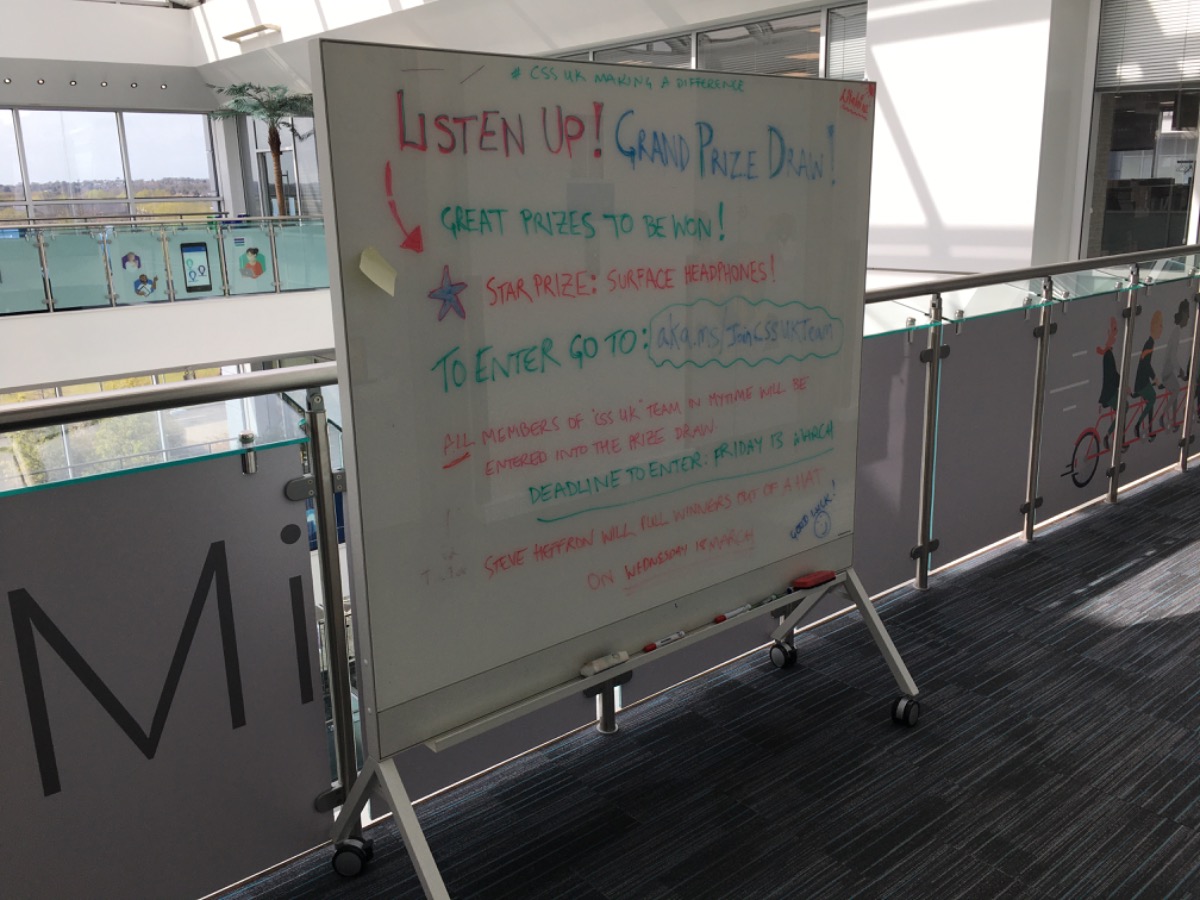 # CSS UK MAKING A DIFFERENCE
LISTEN UP! GRAND PRIZE DRAW!
GREAT PRIZES TO BE WON!
STAR PRIZE: SURFACE HEADPHONES!
TO ENTER GO TO: aka.ms/JoinCSSUKTeam
ALL MEMBERS OF 'CSS UK' TEAM IN MYTIME WILL BE
ENTERED INTO THE PRIZE DRAW
DEADLINE TO ENTER: FRIDAY 13 MARCH
STEVE HEFFRON WILL PULL WINNERS OUT OF A HAT
ON WEDNESDAY 18 MARCH
GOOD LUCK!
Mi